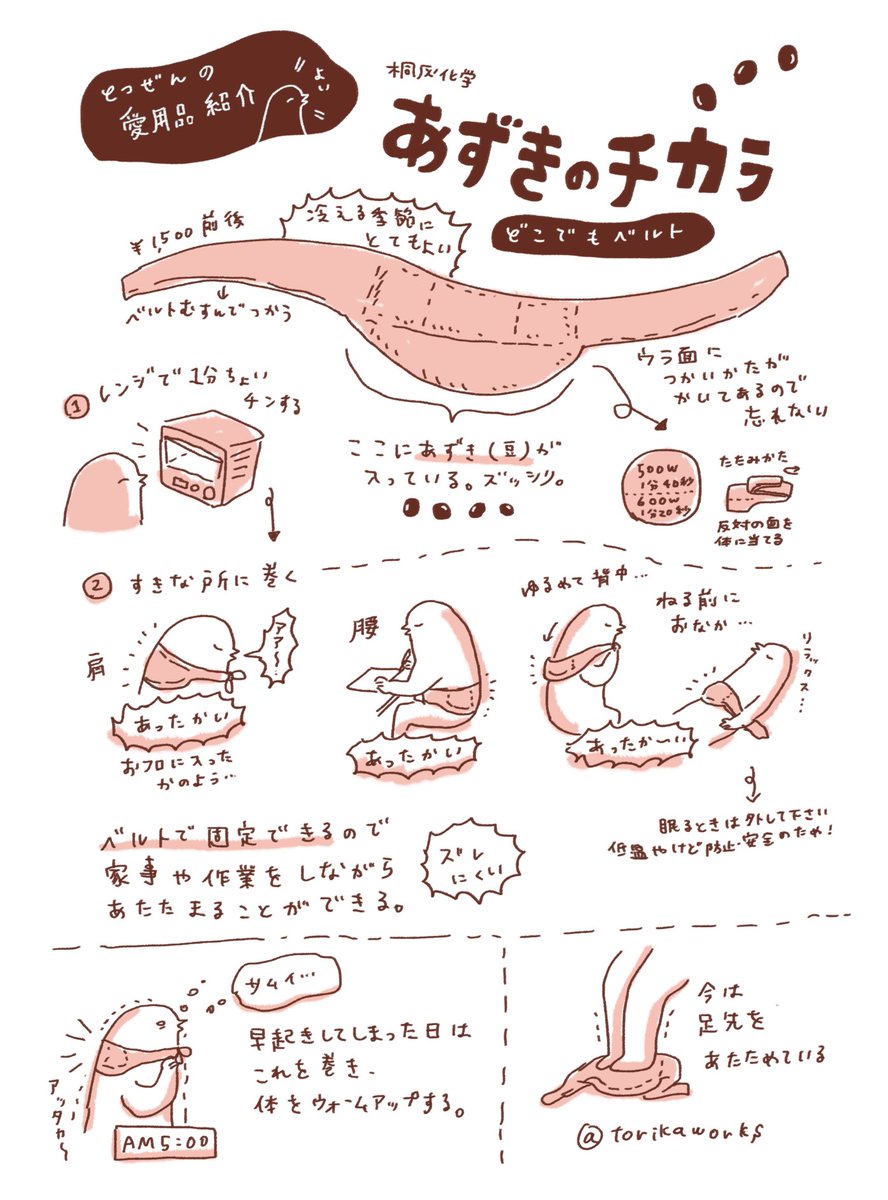 とつぜんの
愛用品紹介
よい
桐灰化学
あずきのチカラ
どこでもベルト
¥1,500前後
冷える季節に
とてもよい
ベルトむすんでつかう
ウラ面に
つかいかたが
かいてあるので
忘れない
① レンジで1分ちょい
チンする
ここにあずき(豆)が
入っている。ズッシリ。
500W
1分40秒
600W
1分20秒
たたみかた
反対の面を
体に当てる
② すきな所に巻く
肩
アア〜
あったかい
おフロに入った
かのよう…
腰
あったかい
ゆるめて背中…
あったか〜い
ねる前に
おなか…
リラックス…
眠るときは外して下さい
低温やけど防止・安全のため!
ベルトで固定できるので
家事や作業をしながら
あたたまることができる。
ズレ
にくい
サムイ…
早起きしてしまった日は
これを巻き、
体をウォームアップする。
アッタカ〜
AM5:00
今は
足先を
あたためている
@torikaworks